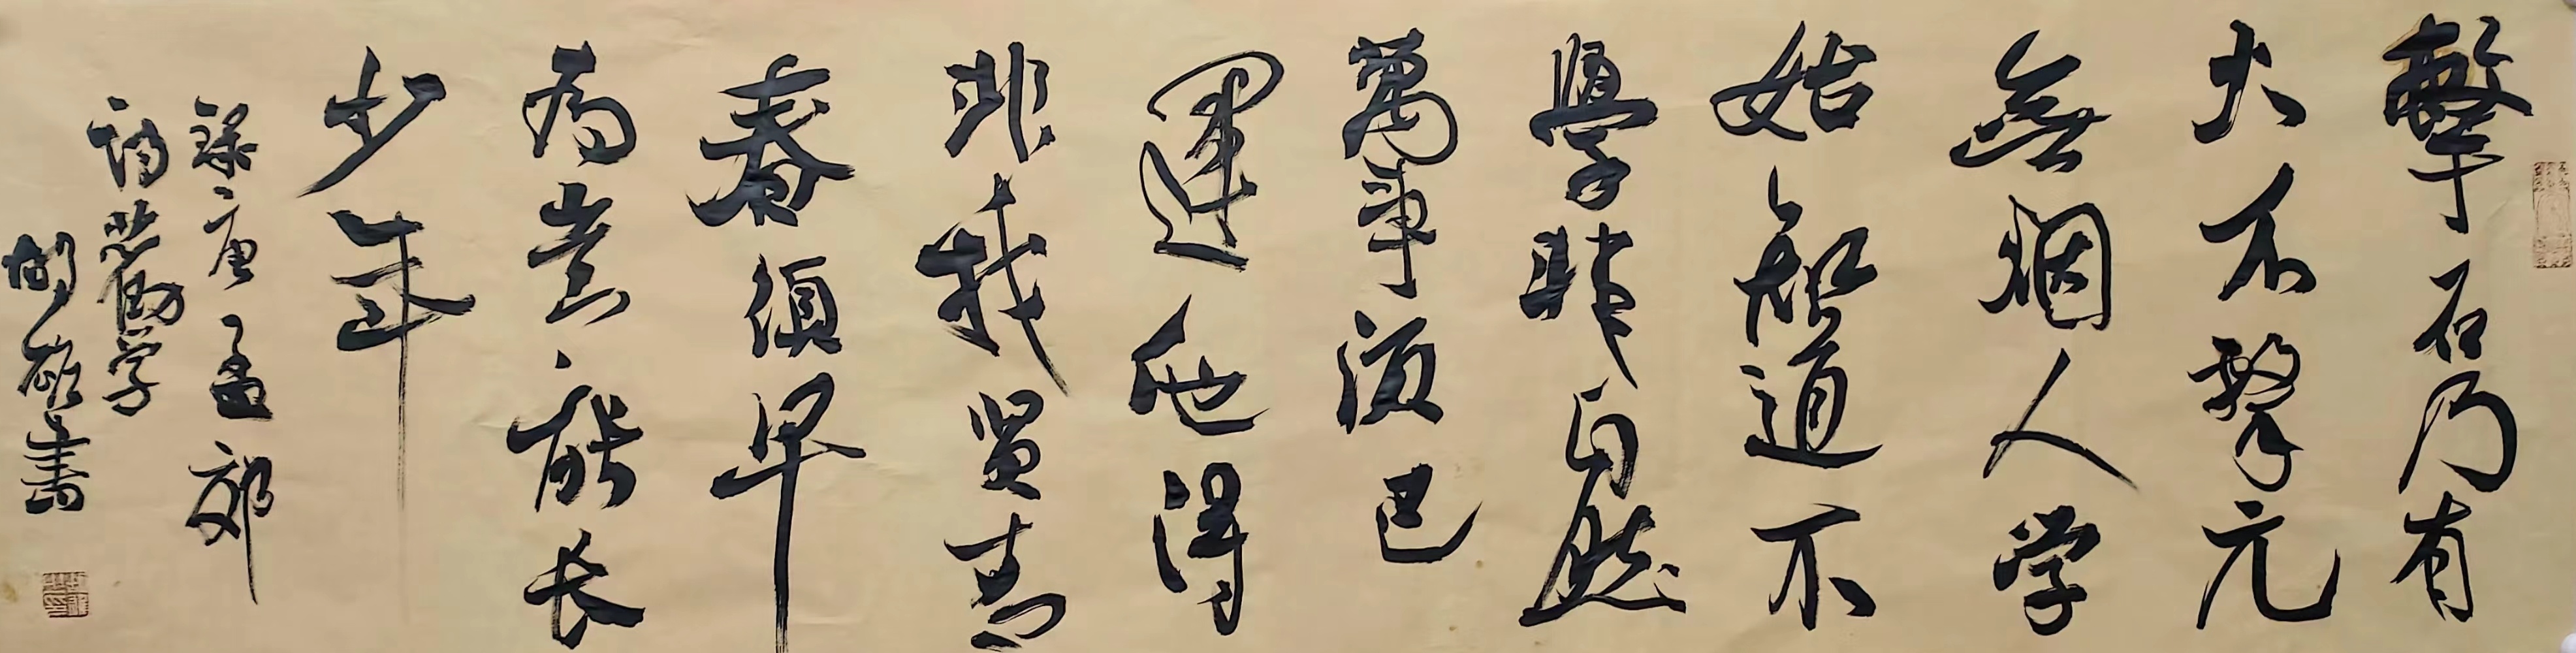 擊石乃有
火不擊元
無烟人学
始知道不
學非自然
萬事須已
運他得
非我賢青
春須早
為豈能长
少年
錄唐孟郊
詩勸学
胡雄書